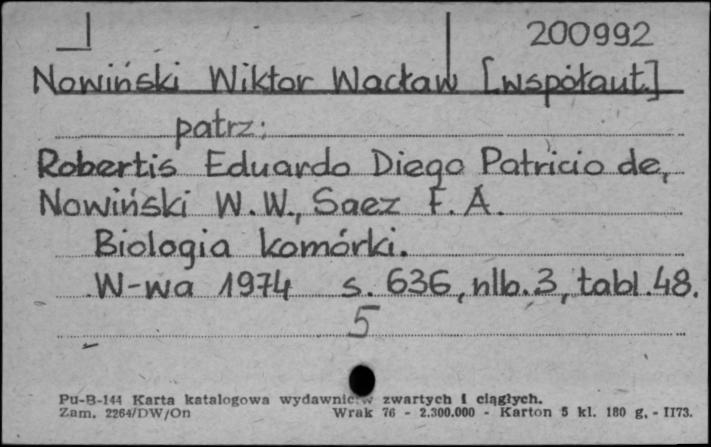 200992
Nowiński Wiktor Wacław [współaut.]
patrz:
Robertis Eduardo Diego Patricio de,
Nowiński W.W., Saez F.A.
Biologia komórki.
W-wa 1974 s. 636, nlb. 3, tabl. 48.
5
Pu-B-144 Karta katalogowa wydawnictw zwartych i ciągłych.
Zam. 2264/DW/On Wrak 76 - 2.300.000 - Karton 5 kl. 180 g. - II73.